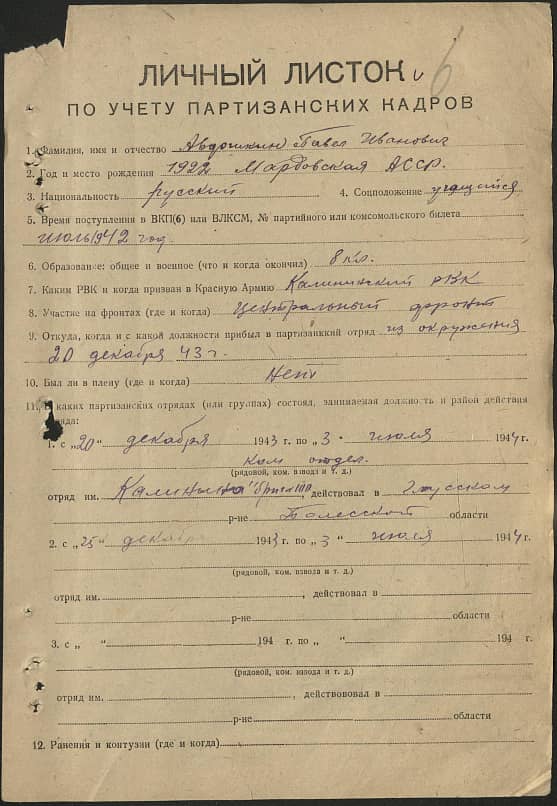 6
ЛИЧНЫЙ ЛИСТОК
ПО УЧЕТУ ПАРТИЗАНСКИХ КАДРОВ
1. Фамилия, имя и отчество Авдошкин Павел Иванович
2. Год и место рождения 1922 Мардовская АССР.
3. Национальность русский 4. Соцположение учащийся
5. Время поступления в ВКП(б) или ВЛКСМ, № партийного или комсомольского билета
июль 1942 год
6. Образование: общее и военное (что и когда окончил) 8 кл.
7. Каким РВК и когда призван в Красную Армию Калининский РВК
8. Участие на фронтах (где и когда) Центральный фронт
9. Откуда, когда и с какой должности прибыл в партизанский отряд из окружения
20 декабря 43 г.
10. Был ли в плену (где и когда) Нет
11. В каких партизанских отрядах (или группах) состоял, занимаемая должность и район действия
отряда:
1. с „20" декабря 1943 г. по „3" июля 1944 г.
ком отдел.
(рядовой, ком. взвода и т. д.)
отряд им. Калинина , действовал в
р-не Полесской области
2. с „25" декабр 1943 г. по „3" июля 1944 г.
(рядовой, ком. взвода и т. д.)
отряд им. , действовал в
р-не области
3. с „ " 194 г. по „ " 194 г.
(рядовой, ком. взвода и т. д.)
отряд им. , действововал в
р-не области
12. Ранения и контузии (где и когда)